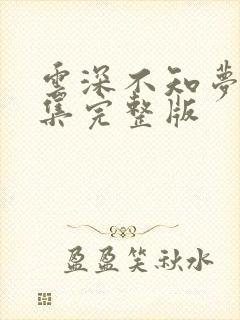 雲深不知夢
集完整版
盈盈笑秋水